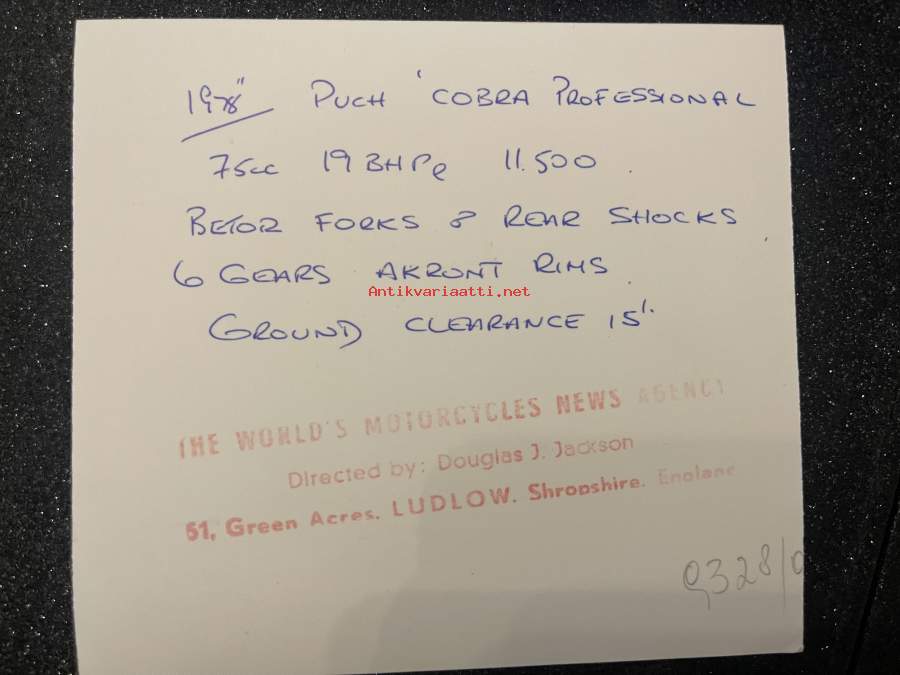 1978" PUCH 'COBRA PROFESSIONAL
75cc 19 BHP@ 11.500
BETOR FORKS & REAR SHOCKS
6 GEARS AKRONT RIMS
Antikvariaatti.net
GROUND CLEARANCE 15".
THE WORLD'S MOTORCYCLES NEWS AGENCY
Directed by: Douglas J. Jackson
51, Green Acres, LUDLOW. Shropshire. England
9328/